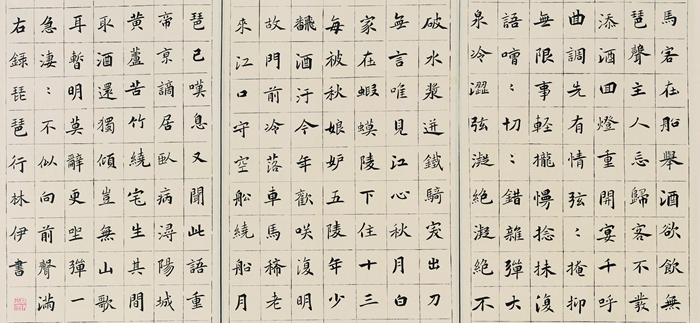 馬客在船舉酒欲飲無
琶聲主人忘歸客不發
添酒囬燈重開宴千呼
曲調先有情弦:掩抑
無限事輕攏慢捻抹復
語嘈:切:錯雜彈大
泉冷澀弦凝絕凝絕不
破水漿迸鐵騎突出刀
無言唯見江心秋月白
家在蝦蟆陵下住十三
每被秋娘妒五陵年少
翻酒汙今年歡咲復明
故門前冷落車馬稀老
來江口守空船繞船月
琶已嘆息又聞此語重
帝京謫居臥病潯陽城
黃蘆苦竹繞宅生其間
取酒還獨傾豈無山歌
耳暫明莫辭更坐彈一
急淒:不似向前聲滿
右錄琵琶行林伊書